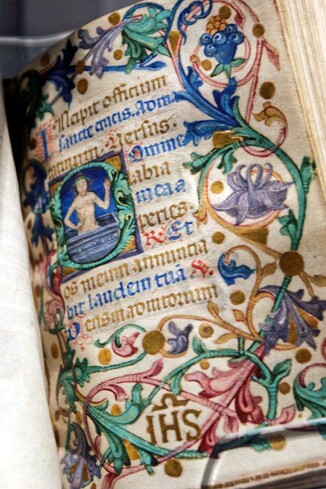 Incipit officium
sancte crucis. Ad ma
tutinum Versus
Domine
labia
mea a
peries.
R Et
os meum annuncia
bit laudem tuā
Deus in adiutorium
IHS